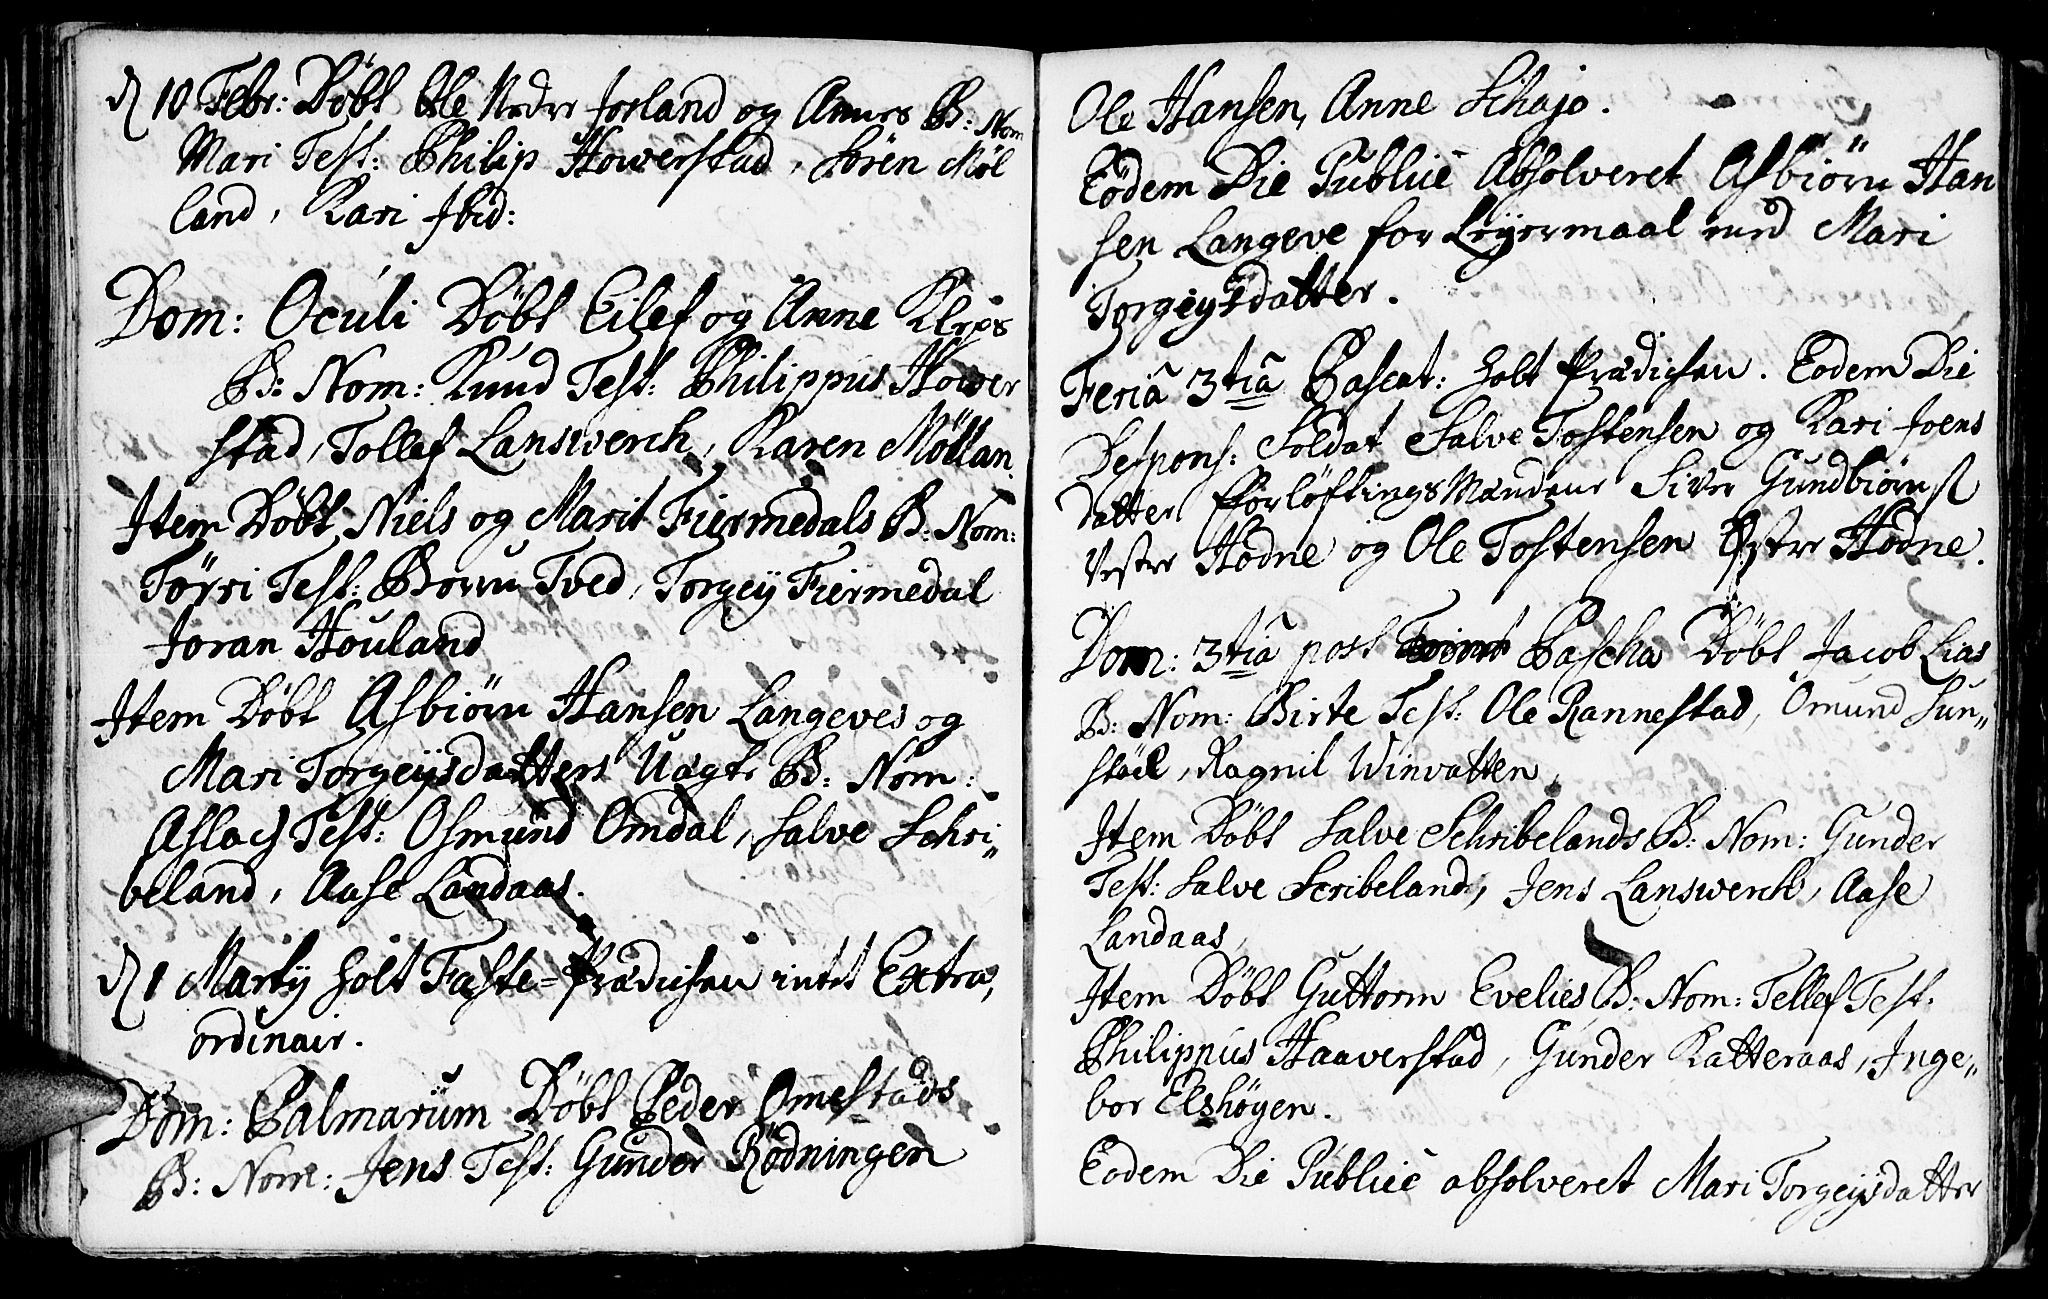 d 10 Febr: Döbt Ole Nedre Jorland og Annes B: Nom
Mari Test: Philip Howerstad, Sören Möl
land, Kari Ibid:
Dom: Oculi Döbt Eilef og Anne Kleps
B: Nom: Knud Test: Philippus Hower
stad, Tollef Lanswerch, Karen Möllan.
Item Döbt Niels og Marit Fiermedals B: Nom:
Törri Test: Borru Tved, Torgey Fiermedal
Joran Houland
Item Döbt Asbiörn Hansen Langeves og
Mari Torgeysdatters Uägte B: Nom:
Aslach Test: Osmund Omdal, Salve Schri„
beland, Aase Landaas.
d 1 Marty holt Faste=Prædichen intet Extra,
ordinair.
Dom: Palmarum Döbt Peder Omestads
B: Nom: Jens Test: Gunder Rödningen
Ole Hansen, Anne Schajo.
Eodem Die Publicè Absolveret Asbiörn Han
sen Langeve for Leyermaal med Mari
Torgeysdatter.
Feriâ 3tiâ Pascat: holt Prædichen. Eodem Die
Despons: Soldat Salve Tostensen og Kari Joens
datter Forlöftings Mændene Siver Gundbiörns
Vestre Hodne og Ole Tostensen Östre Hodne.
Dom: 3tiâ post Pascha Döbt Jacob Lias
B: Nom: Birte Test: Ole Rannestad, Omund Sun„
städ, Ragnil Winvatten,
Item Döbt Salve Schribelands B: Nom: Gunder
Test: Salve Scribeland, Jens Lanswerch, Aase
Landaas,
Item Döbt Guttorm Evelies B: Nom: Tellef Test:
Philippus Haaverstad, Gunder Katteraas, Inge„
bor Elshögen.
Eodem Die Publicè absolveret Mari Torgeysdatter